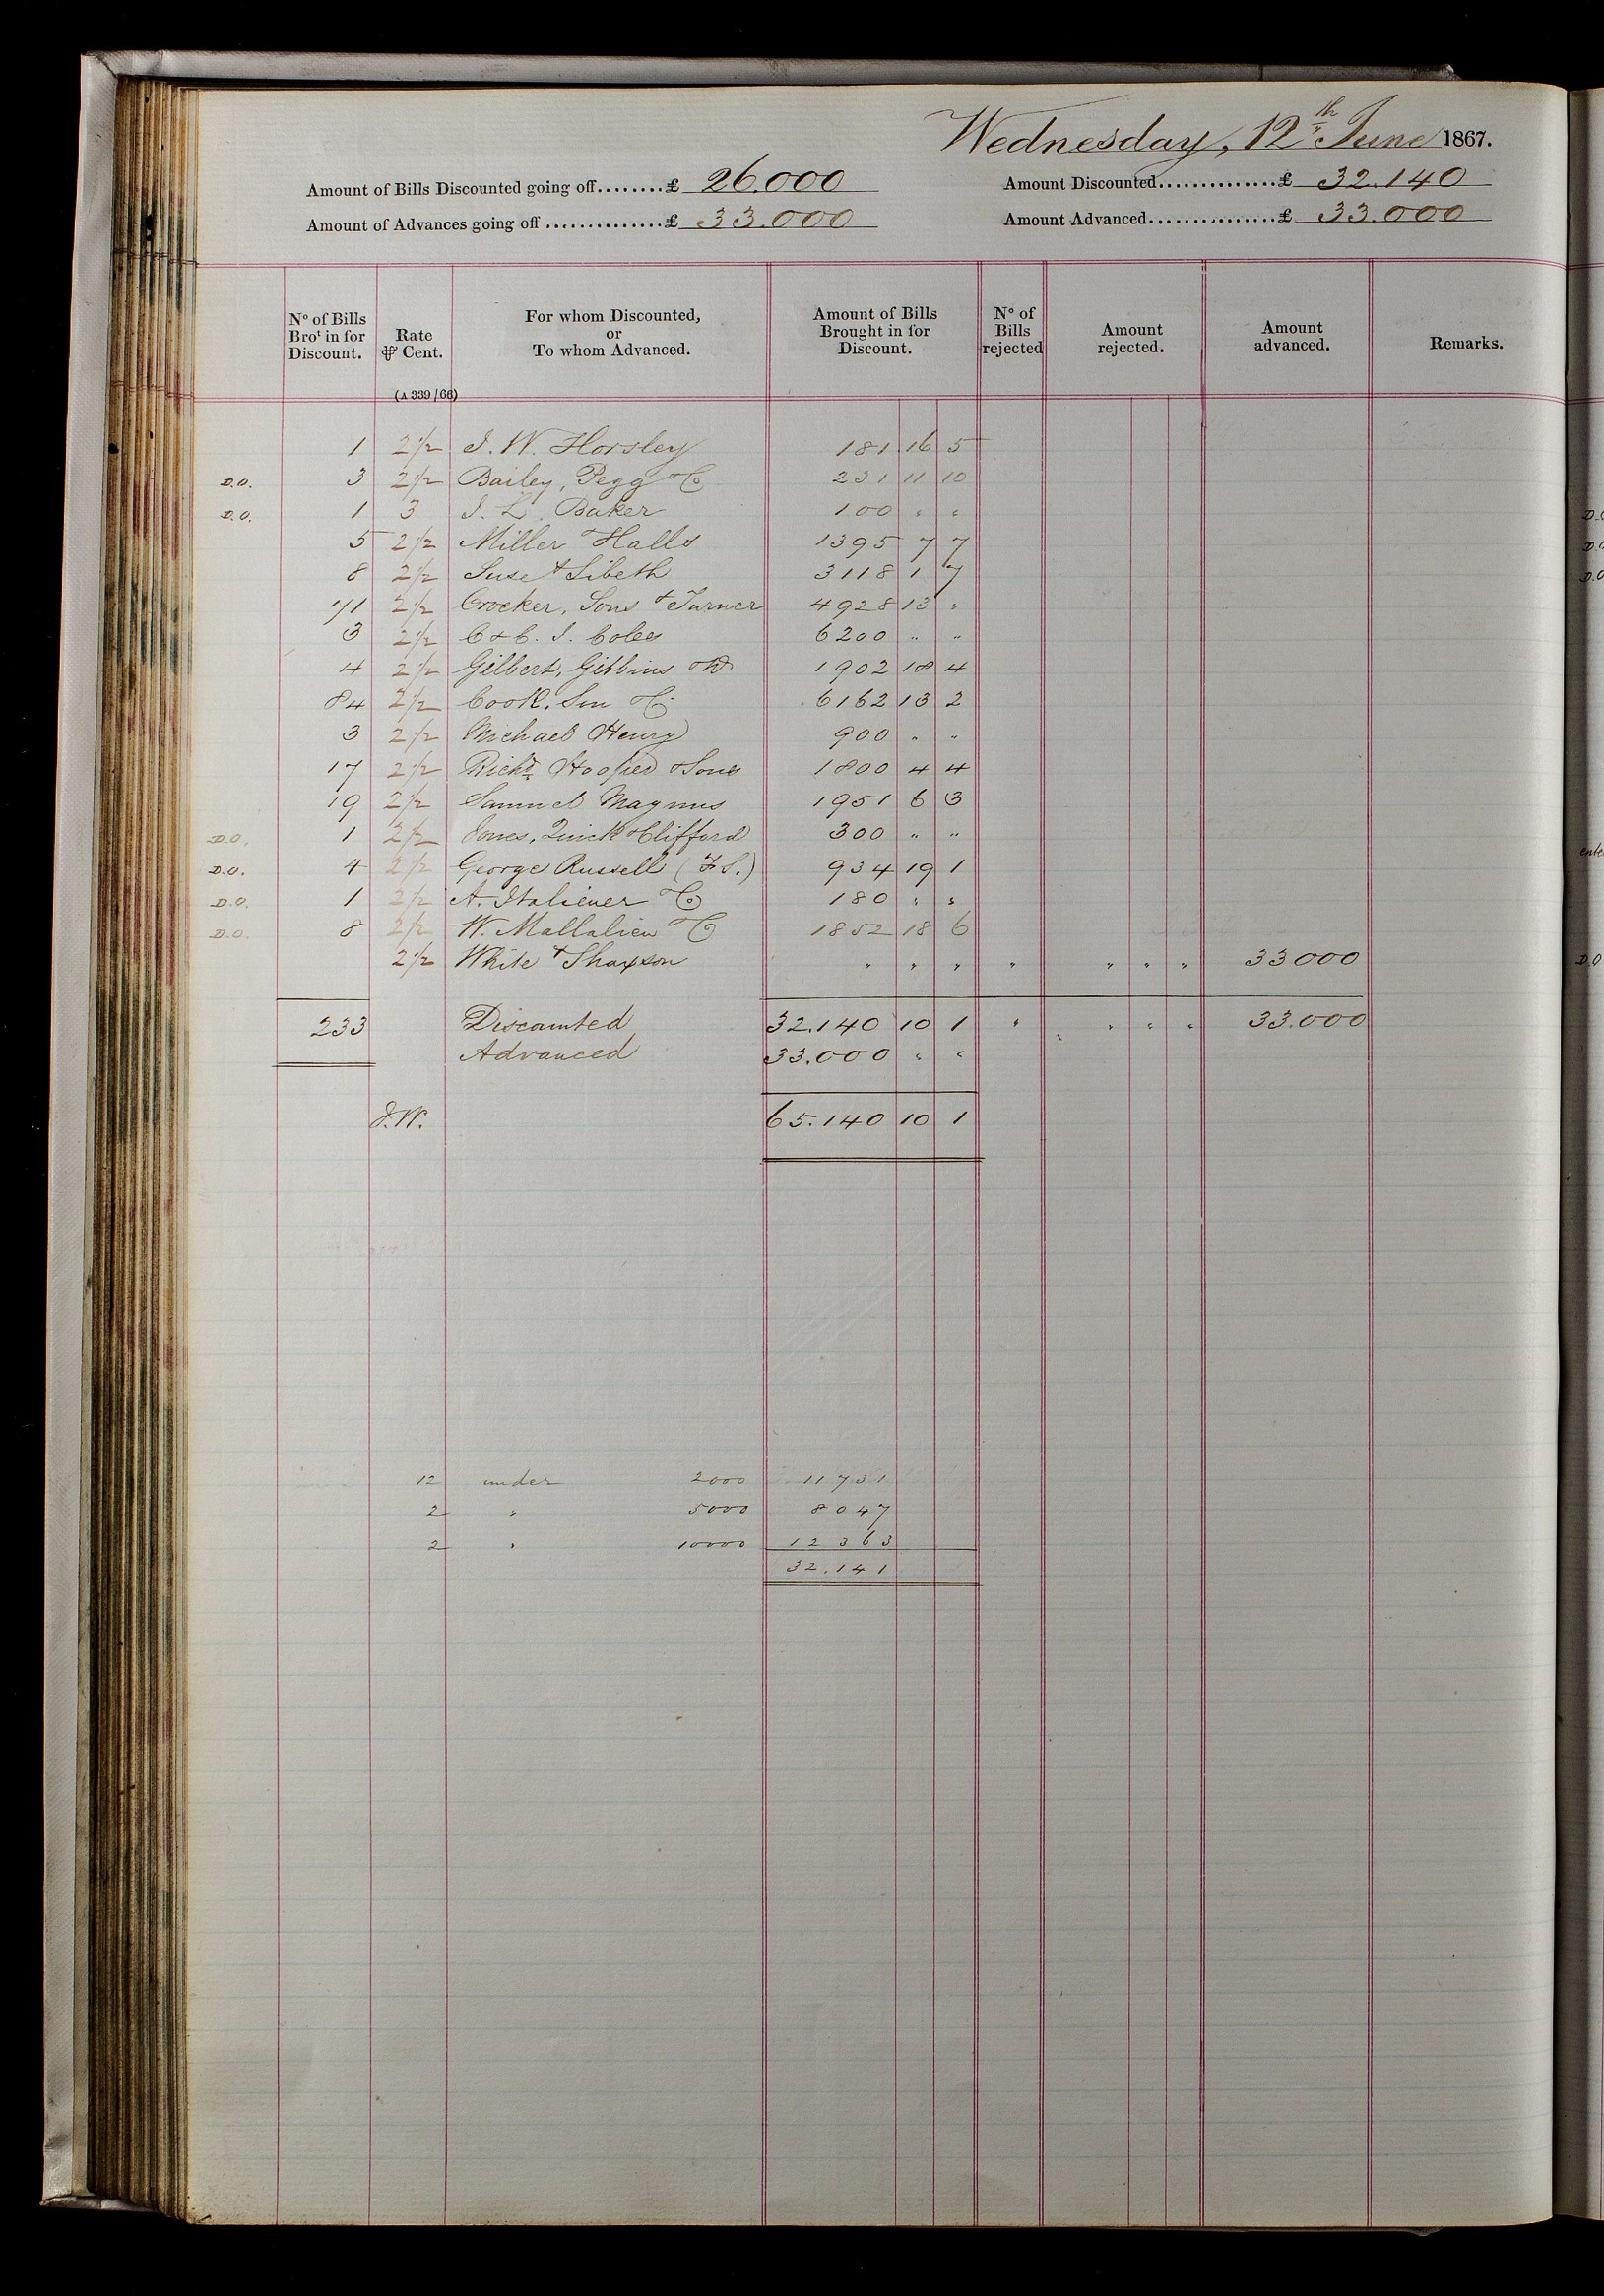 Wednesday, 12th June 1867.
Amount of Bills Discounted going off........£ 26.000
Amount Discounted...............£ 32.140
Amount of Advances going off ..............£ 33.000
Amount Advanced................£ 33.000
No of Bills Brot in for Discount. Rate ⅌ Cent. For whom Discounted, or To whom Advanced. Amount of Bills Brought in for Discount. No of Bills rejected Amount rejected. Amount advanced. Remarks.
(A 339/66)
1 2½ J. W. Horsley 181 16 5
D.O. 3 2½ Bailey, Pegg & Co 231 11 10
D.O. 1 3 J. L. Baker 100 " "
5 2½ Miller & Halls 1395 7 7
8 2½ Suse & Sibeth 3118 1 7
71 2½ Crocker, Sons & Turner 4928 13 "
3 2½ C & C. J. Coles 6200 " "
4 2½ Gilbert, Gibbins 1902 18 4
84 2½ Cook, Son & Co 6162 13 2
3 2½ Michael Henry 900 " "
17 2½ Richd Hooper & Sons 1800 4 4
19 2½ Samuel Magnus 1951 6 3
D.O. 1 2½ Jones, Quick & Clifford 300 " "
D.O. 4 2½ George Russell 934 19 1
D.O. 1 2½ A. Italiener & Co 180 " "
D.O. 8 2½ W. Mallalieu & Co 1852 18 6
2½ White & Shaxson " " " " " " " 33000
233 Discounted 32.140 10 1 " " " " 33.000
Advanced 33.000 " "
J.W. 65.140 10 1
12 under 2000 11731
2 " 5000 8047
2 " 10000 12363
32.141